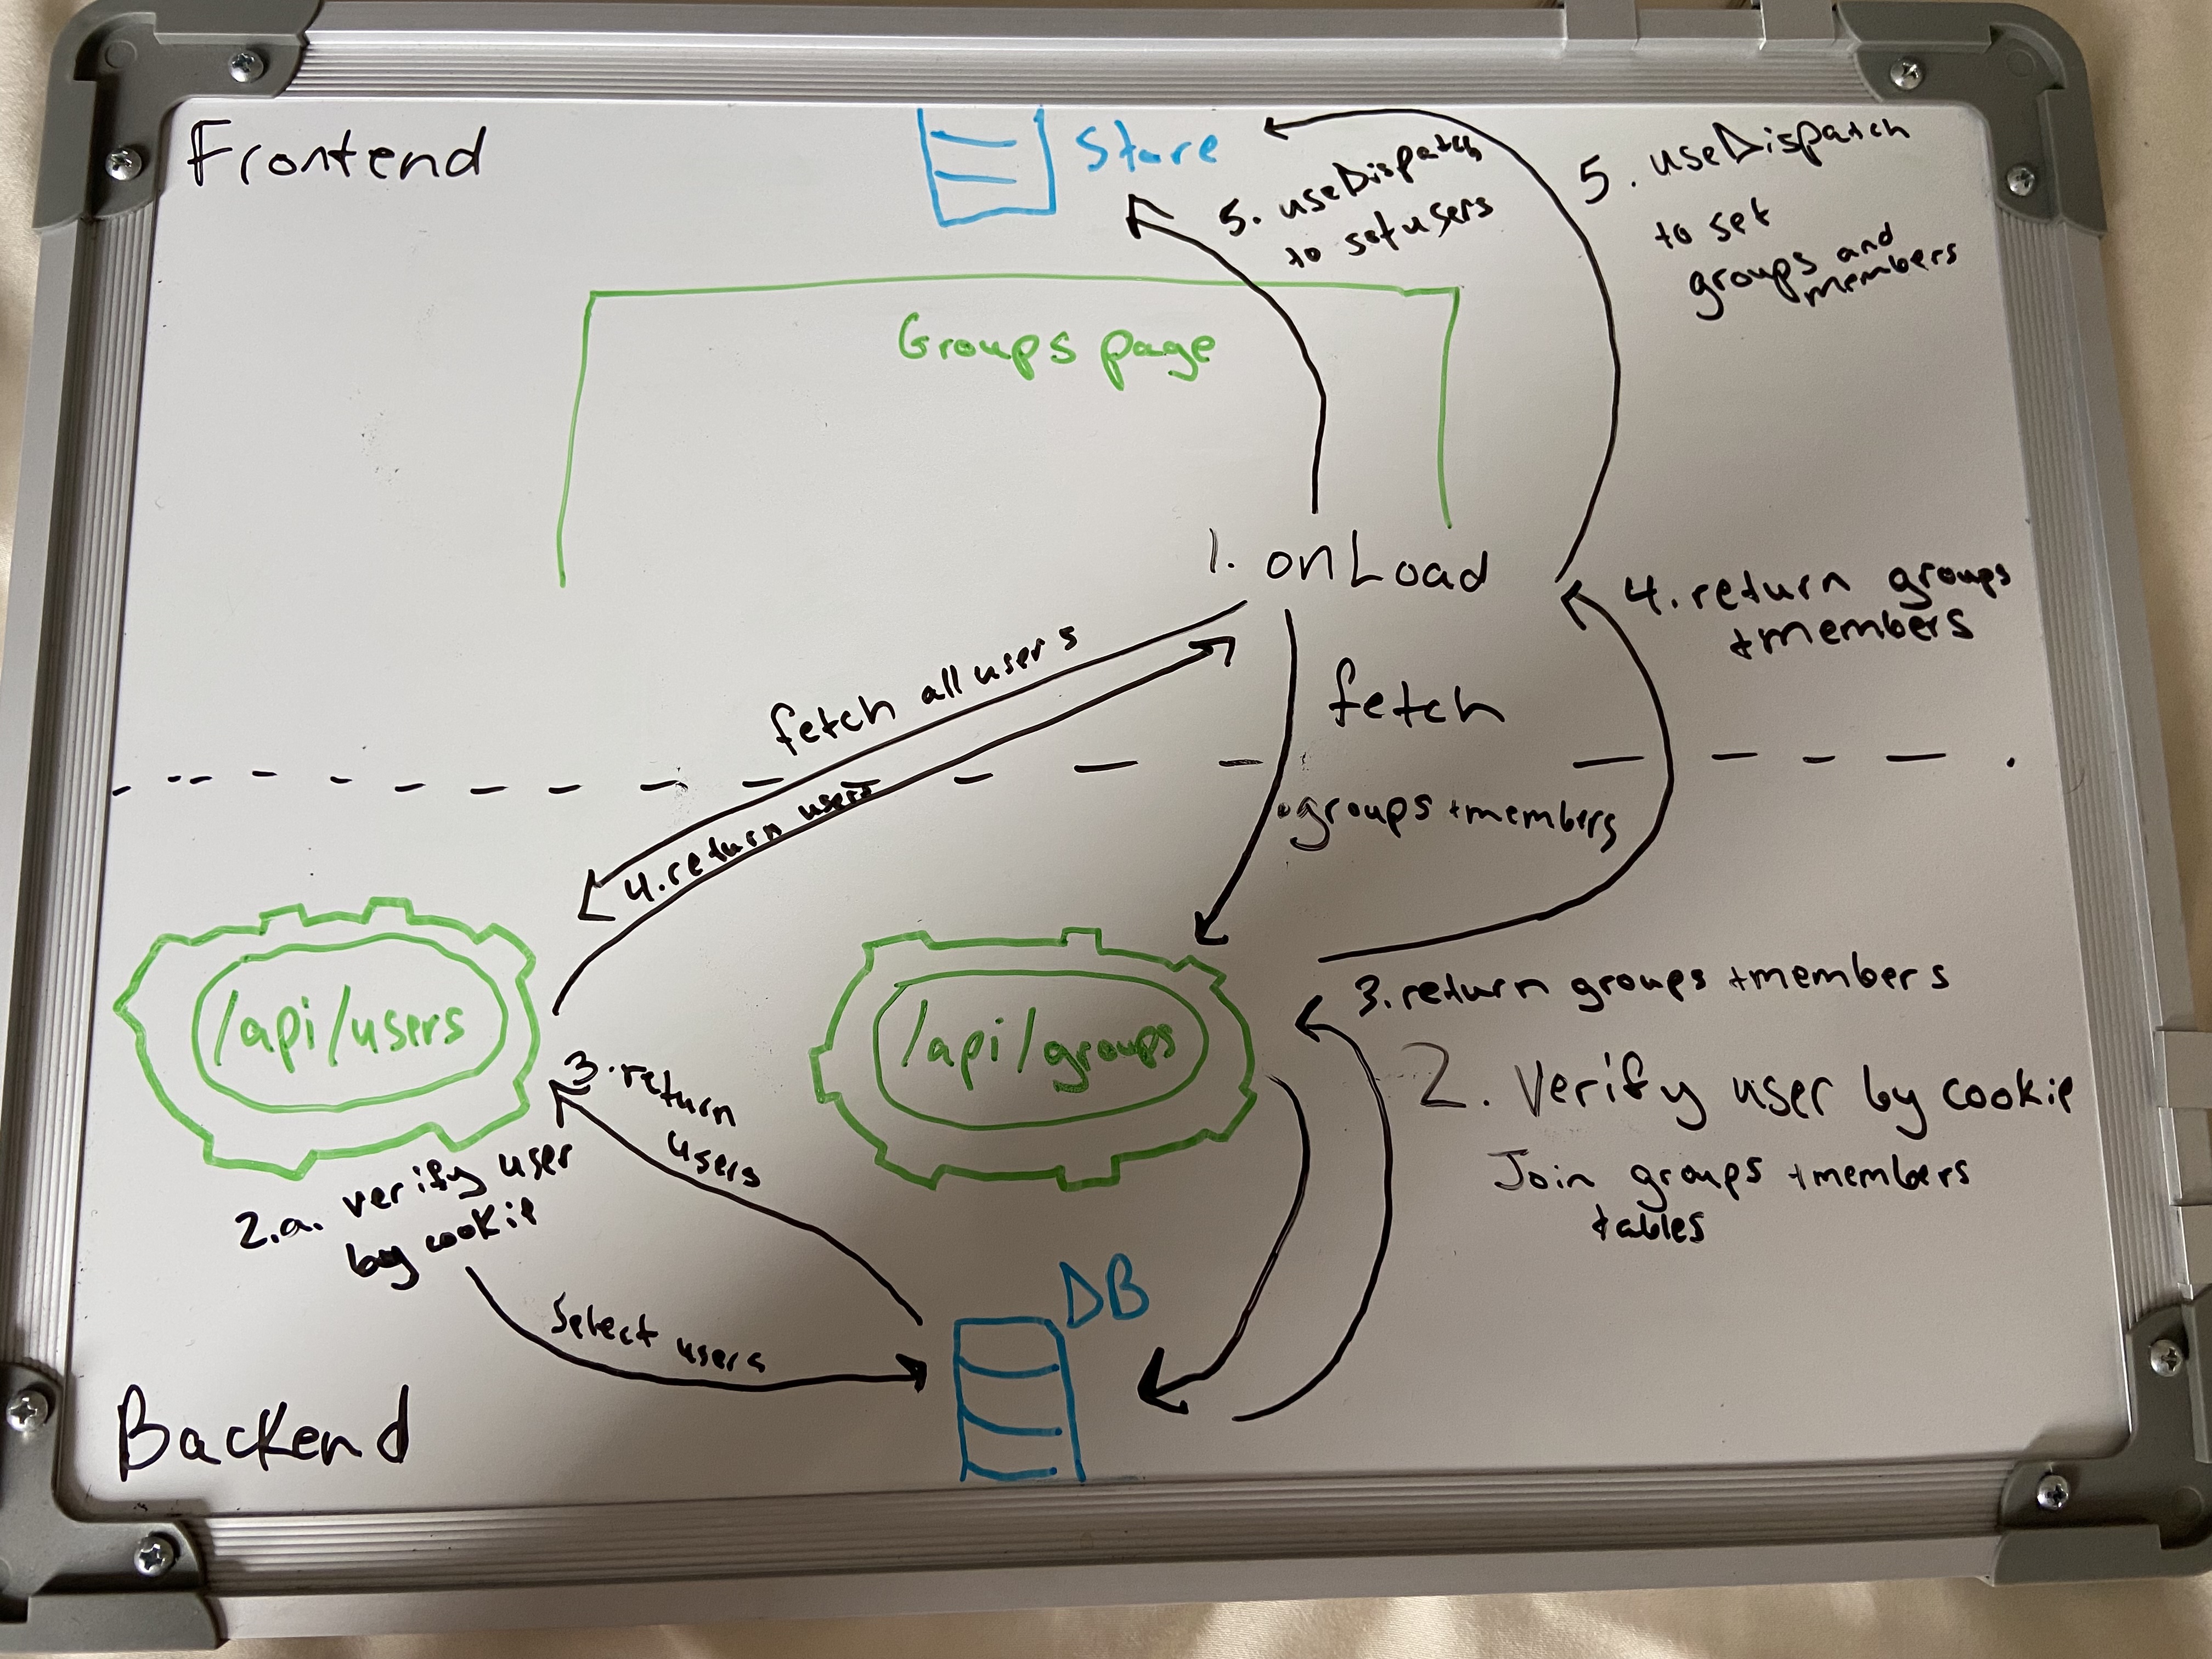 Frontend
Store
5. useDispatch
to set users
5. useDispatch
to set
groups and
members
Groups page
1. onLoad
4. return groups
+members
fetch all users
fetch
groups +members
4. return users
/api/users
/api/groups
3. return groups +members
3. return
users
2. Verify user by cookie
Join groups +members
tables
2.a. verify user
by cookie
Select users
DB
Backend